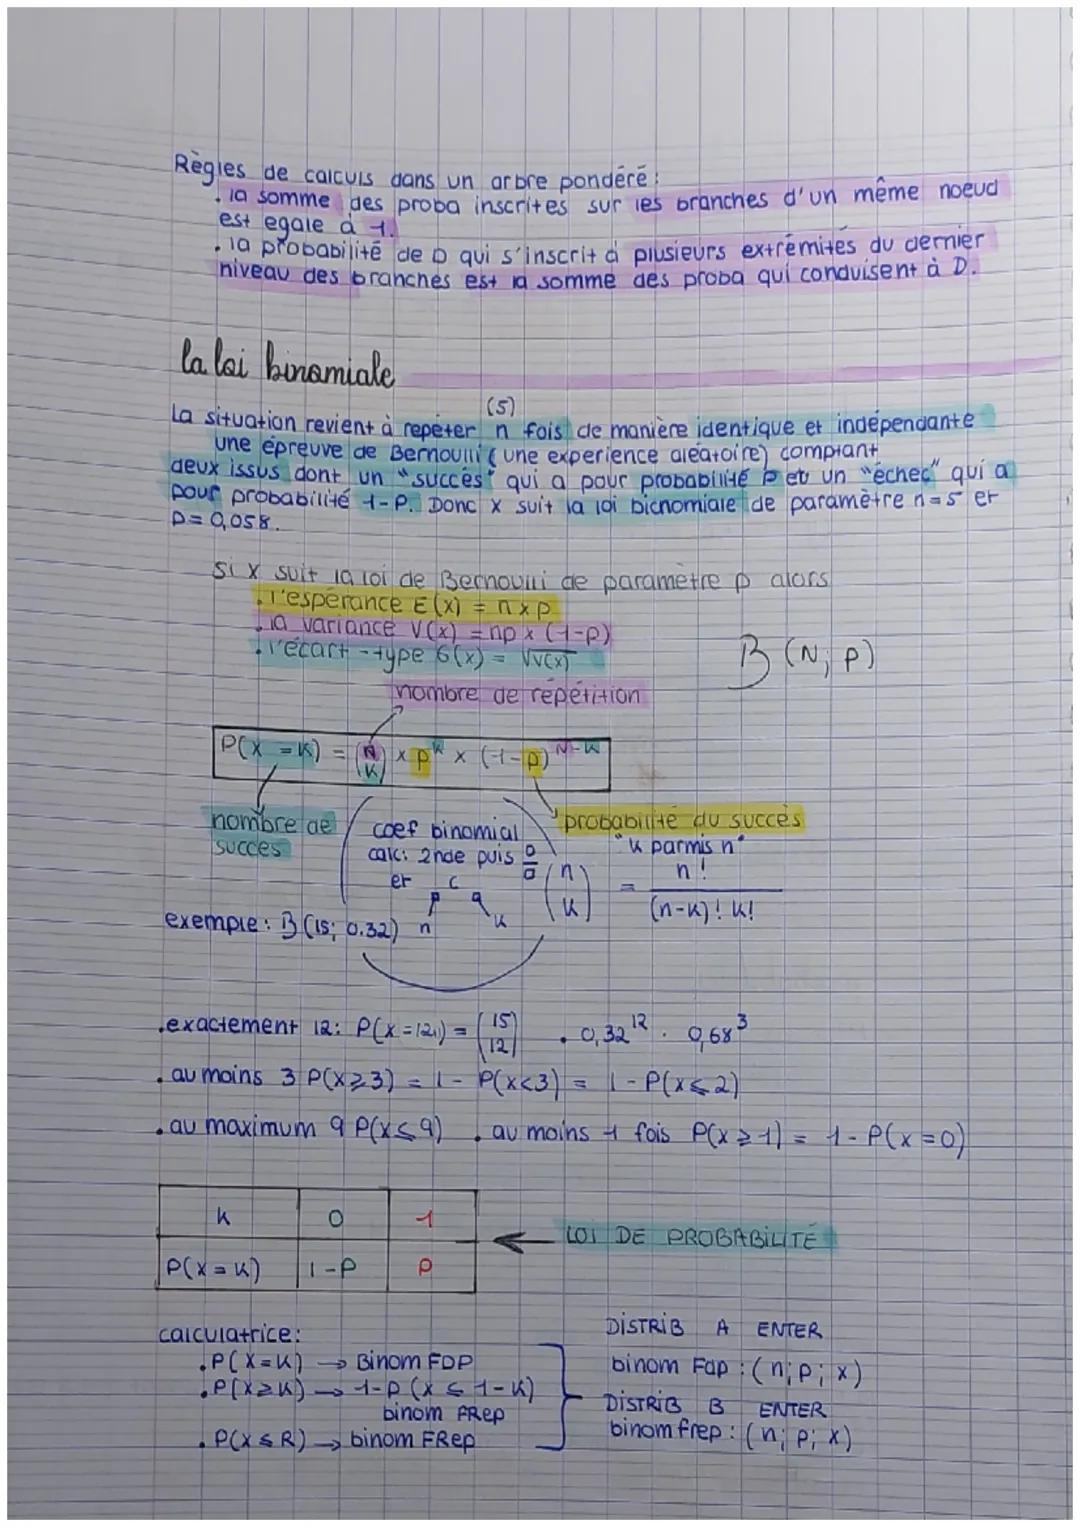 Règles de calculs dans un arbre pondéré :
. la somme des proba inscrites sur les branches d'un même noeud
est egale à 1.
. la probabilité de D qui s'inscrit à plusieurs extrémités du dernier
niveau des branches est la somme des proba qui conduisent à D.
la loi binomiale
(5)
La situation revient à repéter n fois de manière identique et indépendante
une épreuve de Bernoulli (une experience aléatoire) comptant
deux issus dont un "succès" qui a pour probabilité P et un "échec" qui a
pour probabilité 1-P. Donc X suit la loi bicnomiale de paramètre n=5 et
P= 0,058.
si X suit la loi de Bernoulli de paramètre p alors
. l'espérance E(x) = n x p
. la variance V(x) = np x (1-p)
. l'écart -type б(x) = √V(x)
B (N; p)
nombre de répétition
P(X = k) = (N k) x p^k x (1-p)^N-k
nombre de
succès
coef binomial
calc: 2nde puis
er
n p c q k
probabilité du succès
"k parmis n"
(n k) = n! / (n-k)! k!
exemple : B (15; 0.32)
. exactement 12: P(X=12) = (15 12) . 0,32^12 . 0,68^3
. au moins 3 P(X⩾3) = 1 - P(X<3) = 1 - P(X⩽2)
. au maximum 9 P(X⩽9) . au moins 1 fois P(X ⩾ 1) = 1 - P(X = 0)
k 0 1
P(X = k) 1-P P
← LOI DE PROBABILITÉ
calculatrice:
. P(X=k) → Binom FDP
. P(X⩾k) → 1-P (X ⩽ 1-k)
binom FRep
. P(X ⩽ R) → binom FRep
DISTRIB A ENTER
binom Fdp : (n; p; x)
DISTRIB B ENTER
binom frep : (n; p; x)